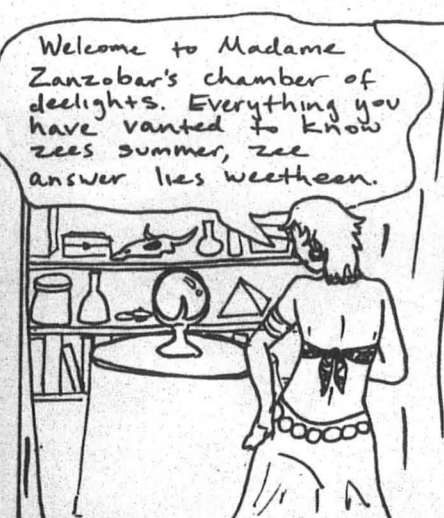 Welcome to Madame
Zanzobar's chamber of
deelights. Everything you
have vanted to know
zees summer, zee
answer lies weetheen.